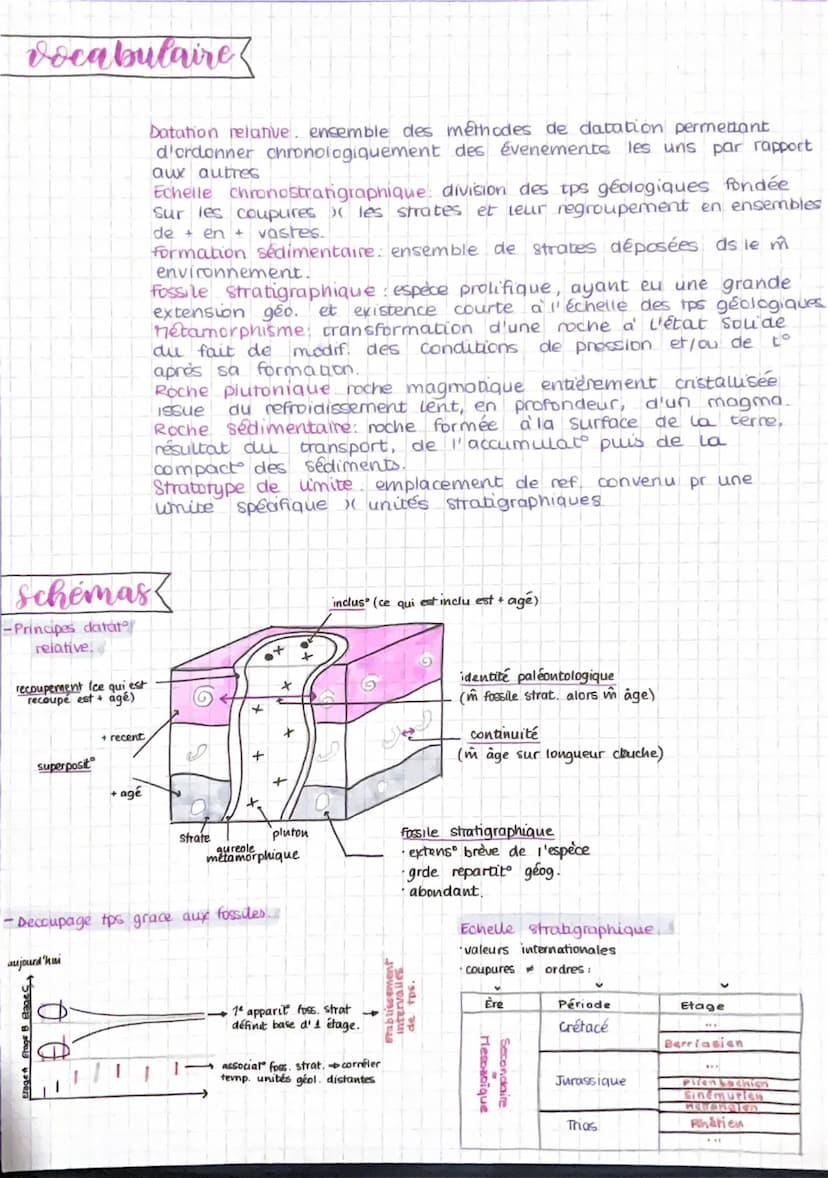 vocabulaire
Datation relative. ensemble des méthodes de datation permettant
d'ordonner chronologiquement des évenements les uns par rapport
aux autres
Echelle chronostratigraphique: division des tps géologiques fondée
sur les coupures )( les strates et leur regroupement en ensembles
de + en + vastes.
Formation sédimentaire: ensemble de strates déposées ds le m̂
environnement.
Fossile stratigraphique : espèce prolifique, ayant eu une grande
extension géo. et existence courte à l'échelle des tps géologiques
Métamorphisme: transformation d'une roche à l'état solide
du fait de modif. des conditions de pression et/ou de t°
après sa formation.
Roche plutonique roche magmatique entièrement cristallisée
issue du refroidissement lent, en profondeur, d'un magma.
Roche sédimentaire: roche formée à la surface de la terre,
résultat du transport, de l'accumulat° puis de la
compact° des sédiments.
Stratotype de limite. emplacement de ref. convenu pr une
limite spécifique )( unités stratigraphiques
schémas
-Principes datat°
relative.
inclus° (ce qui est inclu est + agé)
recoupement (ce qui est
recoupé est + agé)
+ recent
superposit°
+ agé
identité paléontologique
(m̂ fossile strat. alors m̂ âge)
continuité
(m̂ âge sur longueur couche)
strate
aureole
métamorphique
pluton
fossile stratigraphique
· extens° brève de l'espèce
· grde repartit° géog.
· abondant.
- Decoupage tps grace aux fossiles.
aujourd'hui
Etage A Etage B Etage C
1e apparit° foss. strat
définit base d'1 étage.
Etablissement
intervalles
de tps.
associat° foss. strat. ⇒ corréler
temp. unités géol. distantes
Echelle stratigraphique.
· valeurs internationales
· coupures ≠ ordres :
Ère Période Etage
Secondaire
=
Mesozoïque
Crétacé
...
Berriasien
Jurassique
...
Plienbachien
Sinémurien
Hettangien
Trias
Rhétien
...